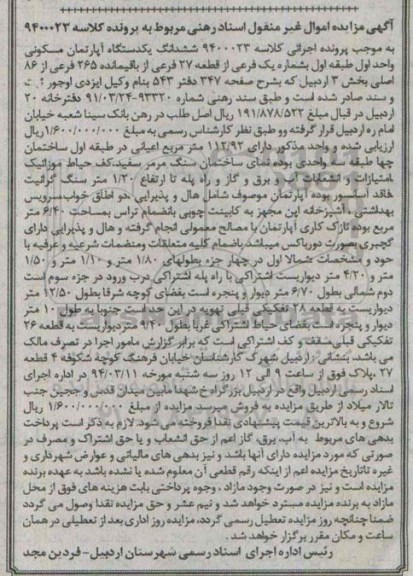 آگهی مزایده اموال غیر منقول اسناد رهنی مربوط به پرونده کلاسه ۹۴۰۰۰۲۳
به موجب پرونده اجرائی کلاسه ۹۴۰۰۰۲۳ ششدانگ یکدستگاه آپارتمان مسکونی
واحد اول طبقه اول بشماره یک فرعی از قطعه ۲۷ فرعی از باقیمانده ۲۶۵ فرعی از ۸۶
اصلی بخش ۳ اردبیل که بشرح صفحه ۳۴۷ دفتر ۵۴۳ بنام وکیل ایزدی اوجور ثبت
و سند صادر شده است و طبق سند رهنی شماره ۹۳۳۲۰-۹۱/۰۳/۲۴ دفترخانه ۲۰
اردبیل در قبال مبلغ ۱۹۱/۸۷۸/۵۲۲ ریال اصل طلب در رهن بانک سینا شعبه خیابان
امام ره اردبیل قرار گرفته وو طبق نظر کارشناس رسمی به مبلغ ۱/۶۰۰/۰۰۰/۰۰۰ ریال
ارزیابی شده و واحد مذکور دارای ۱۱۲/۹۲ متر مربع اعیانی در طبقه اول ساختمان
چها طبقه سه واحدی بوده نمای ساختمان سنگ مرمر سفید،کف حیاط موزائیک
،امتیازات و انشعابات آب و برق و گاز و راه پله تا ارتفاع ۱/۲۰ متر سنگ گرانیت
،فاقد آسانسور بوده آپارتمان موصوف شامل هال و پذیرایی ،دو اطاق خواب،سرویس
بهداشتی ، آشپزخانه اپن مجهز به کابینت چوبی بانضمام تراس بمساحت ۶/۴۰ متر
مربع بوده نازک کاری آپارتمان با مصالح معمولی انجام گرفته و هال و پذیرایی دارای
گچبری بصورت دورباکس میباشد بانضمام کلیه متعلقات ومنضمات شرعیه و عرفیه با
حود و مشخصات شمالا اول در چهار جزء بطولهای ۱/۸۰ متر و ۱/۱۰ متر و ۱/۵۰
متر و ۴/۲۰ متر دیواریست اشتراکی با راه پله اشتراکی درب ورود در جزء سوم است
دوم شمالی بطول ۶/۷۰ متر دیوار و پنجره است بفضای کوچه شرقا بطول ۱۲/۵۰ متر
دیواریست به قطعه ۲۸ تفکیکی قبلی تهویه در این حد است جنوبا به طول ۱۰ متر
دیوار و پنجره است بفضای حیاط اشتراکی غربا بطول ۹/۴۰ متر دیواریست به قطعه ۲۶
تفکیکی قبلی،سقف و کف اشتراکی است که برابر گزارش مامور اجرا در تصرف مالک
می باشد، بنشانی : اردبیل شهرک کارشناسان خیابان فرهنگ کوچه شکوفه ۴ قطعه
۲۷ ،پلاک فوق از ساعت ۹ الی ۱۲ روز سه شنبه مورخه ۹۴/۰۳/۱۱ در اداره اجرای
اسناد رسمی اردبیل واقع در اردبیل بزرگراه شهدا مابین میدان قدس و ججین جنب
تالار میلاد از طریق مزایده به فروش میرسد مزایده از مبلغ ۱/۶۰۰/۰۰۰/۰۰۰ ریال
شروع و به بالاترین قیمت پیشنهادی نقدا فروخته می شود، لازم به ذکر است پرداخت
بدهی های مربوط به آب، برق، گاز اعم از حق انشعاب و یا حق اشتراک و مصرف در
صورتی که مورد مزایده دارای آنها باشد و نیز بدهی های مالیاتی و عوارض شهرداری و
غیره تاتاریخ مزایده اعم از اینکه رقم قطعی آن معلوم شده یا نشده باشد به عهده برنده
مزایده است و نیز در صورت وجود مازاد ، وجوه پرداختی بابت هزینه های فوق از محل
مازاد به برنده مزایده مسترد خواهد شد و نیم عشر و حق مزایده نقدا وصول می گردد
ضمنا چنانچه روز مزایده تعطیل رسمی گردد، مزایده روز اداری بعد از تعطیلی در همان
ساعت و مکان مقرر برگزار خواهد شد.
رئیس اداره اجرای اسناد رسمی شهرستان اردبیل- فردین مجد